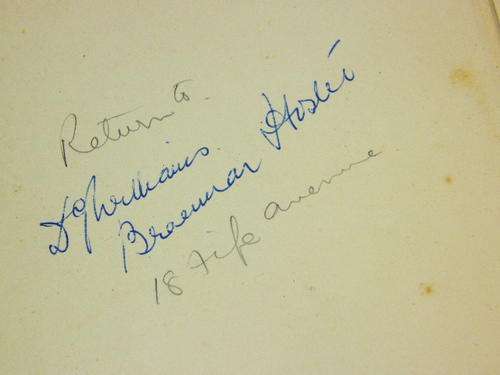 Return to
D G Williams
Braemar Hostel
18 Fife Avenue